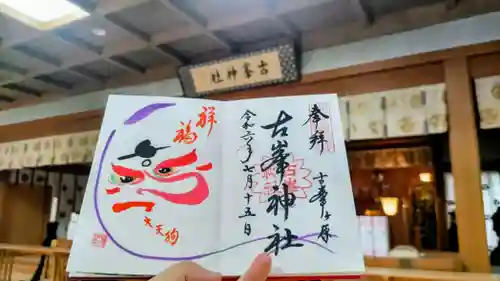 古峯神社
奉拝
古峯ヶ原
古峯神社
令和六年七月十五日
祥福
大天狗